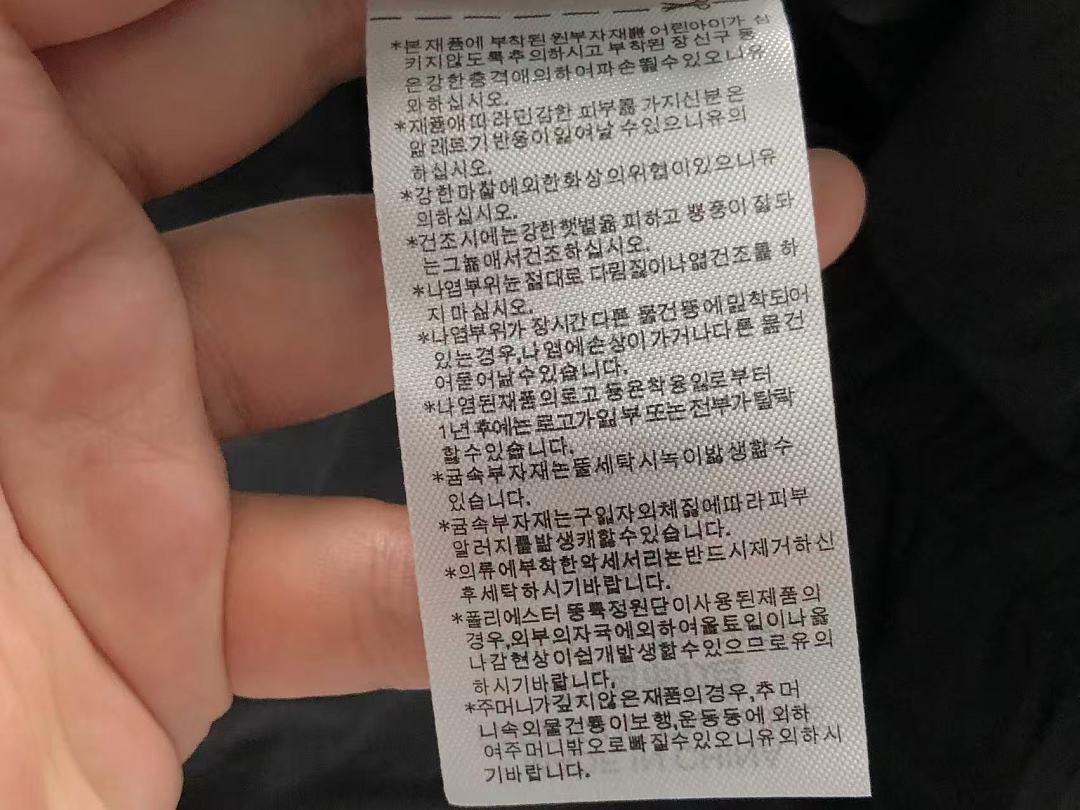 *본재품에 부착된 원부자재를 어린아이가 삼
키지않도록추의하시고 부착된 장신구 등
은강한충격애의하여파손뙬수있오니유
와하십시오.
*재품애따라민감한 피부룰 가지신분은
알레르기반응이일여날 수있으니유의
하십시오.
*강한마찰에외한화상의위협이있으니유
의하십시오.
*건조시에는강한햇볕읇 피하고 뽕풍이 잘돠
는그늘애서건조하십시오.
*나염부위눈 절대로 다림질이나열건조를 하
지마십시오.
*나염부위가 장시간다른 물건뚱에밀착되어
있는경우,나엽에손상이가거나다른 물건
어물어날수있습니다.
*나염된재품의로고 등은착용일로부터
1년후에는로고가일부또는전부가탈락
할수있습니다.
*굼속부자재는뚤세탁시녹이발생할수
있습니다.
*굼속부자재는구입자외체질에따라피부
알러지를발생캐할수있습니다.
*의류에부착한악세서리는반드시제거하신
후세탁하시기바랍니다.
*폴리에스터 뚱특정원단이사용된제품의
경우,외부의자국에외하여올트입이나올
나감현상이쉽개발생할수있으므로유의
하시기바랍니다.
*주머니가깊지않은재품의경우,추머
니속외물건통이보행,운동등에 외하
여주머니밖오로빠질수있오니유외하시
기바랍니다.